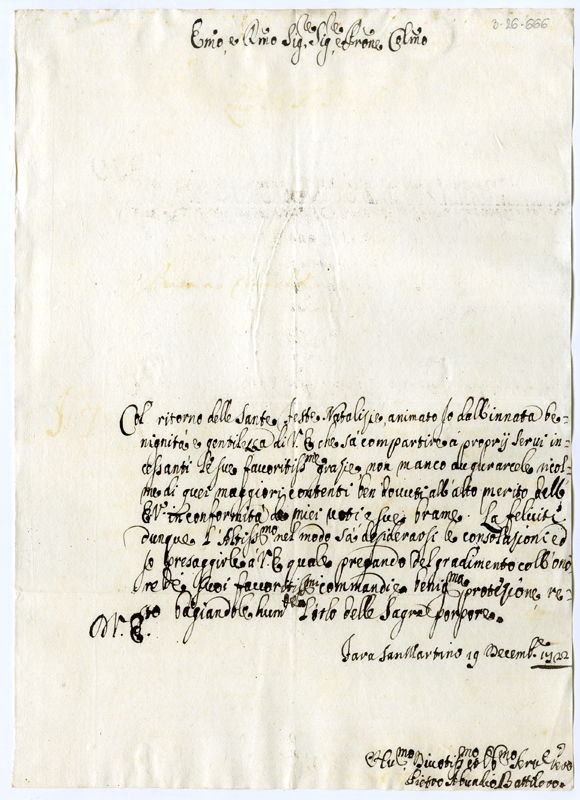 3-26-666
Emo, e Rmo Sig.re Sig.re e Prone Colmo
Col ritorno delle Sante Feste Natalizie, animato Io dall'innata be=
nignità e gentilezza di V.E. che sà compartire à proprij servi in=
cessanti le sue favoritiss.me grazie, non manco augurarcele ricol=
me di quei maggiori contenti ben dovuti all'alto merito dell'
E.V. in conformità de miei voti e sue brame. La feliciti
dunque l'Altiss.mo nel modo sà desiderarsi le consolazioni ed
Io presaggirle à V.E. quale pregando del gradimento coll'ono
re de suoi favoritiss.mi commandi e benig.ma protezione re=
sto bagiandole hum.te l'orlo delle Sagre porpore.
Di V.E.
Fara San Martino 19 Decemb.re 1722
Hu.mo Divotis.mo et Ob.mo Ser.e vero
Pietro Abundio Battiloro